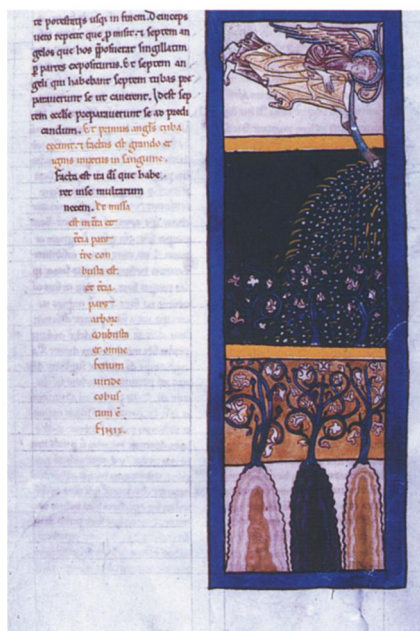 te potestatis usq; in finem. Deinceps
uero repetit que p̄misit. & septem an
gelos que hos p̄posuerat singillatim
ꝑ partes expositurus. Et septem an
geli qui habebant septem tubas p̄
parauerunt se ut canerent. Idest sep
tem ecclie preparauerunt se ad p̄di
candum. Et primus angl̄s tuba
cecinit. & factus est grando et
ignis mixtus in sanguine.
Facta est ira dī que habe
ret in se multarum
necem. Et missa
est in t̄ra et
t̄cia pars
t̄re con
busta est.
et t̄cia
pars
arbor̄
c̄busta
et omne
fenum
uiride
cōbus
tum ē.